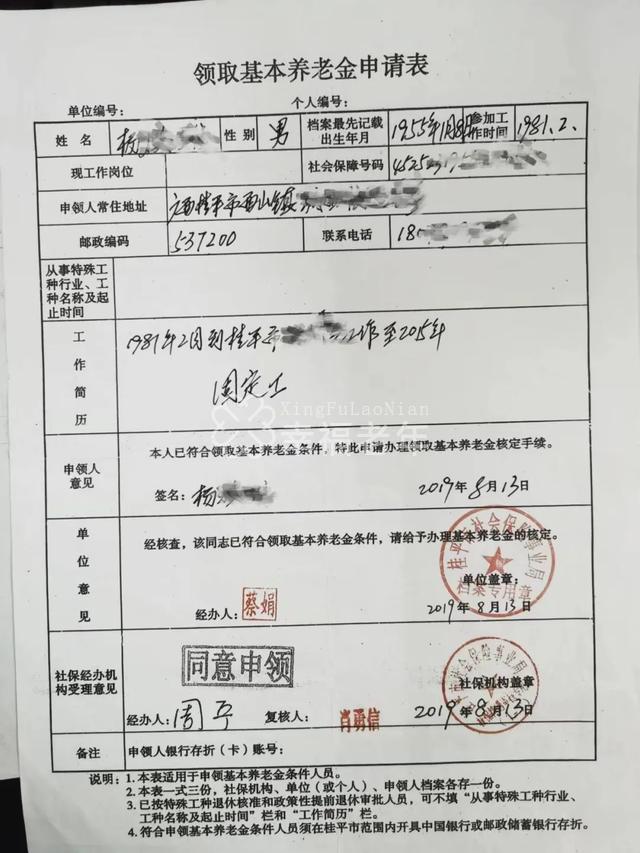 领取基本养老金申请表
单位编号： 个人编号：
姓名 杨 性别 男 档案最先记载出生年月 1955年1月8日 参加工作时间 1981.2.
现工作岗位 社会保障号码 45252
申领人常住地址 广西桂平市西山镇
邮政编码 537200 联系电话 18
从事特殊工
种行业、工
种名称及起
止时间
工作简历
1981年2月到桂平市 工作至2015年
固定工
XingFuLaoNian
幸福老年
申领人意见
本人已符合领取基本养老金条件，特此申请办理领取基本养老金核定手续。
签名：杨 2019年8月13日
单位意见
经核查，该同志已符合领取基本养老金条件，请给予办理基本养老金的核定。
桂平市社会保险事业局
档案专用章
单位盖章：
经办人：蔡娟 2019年8月13日
社保经办机构受理意见
同意申领
社保机构盖章
经办人：周平 复核人：肖勇信 2019年8月13日
备注 申领人银行存折（卡）账号：
说明：1.本表适用于申领基本养老金条件人员。
2.本表一式三份，社保机构、单位（或个人）、申领人档案各存一份。
3.已按特殊工种退休核准和政策性提前退休审批人员，可不填“从事特殊工种行业、
工种名称及起止时间”栏和“工作简历”栏。
4.符合申领基本养老金条件人员须在桂平市范围内开具中国银行或邮政储蓄银行存折。